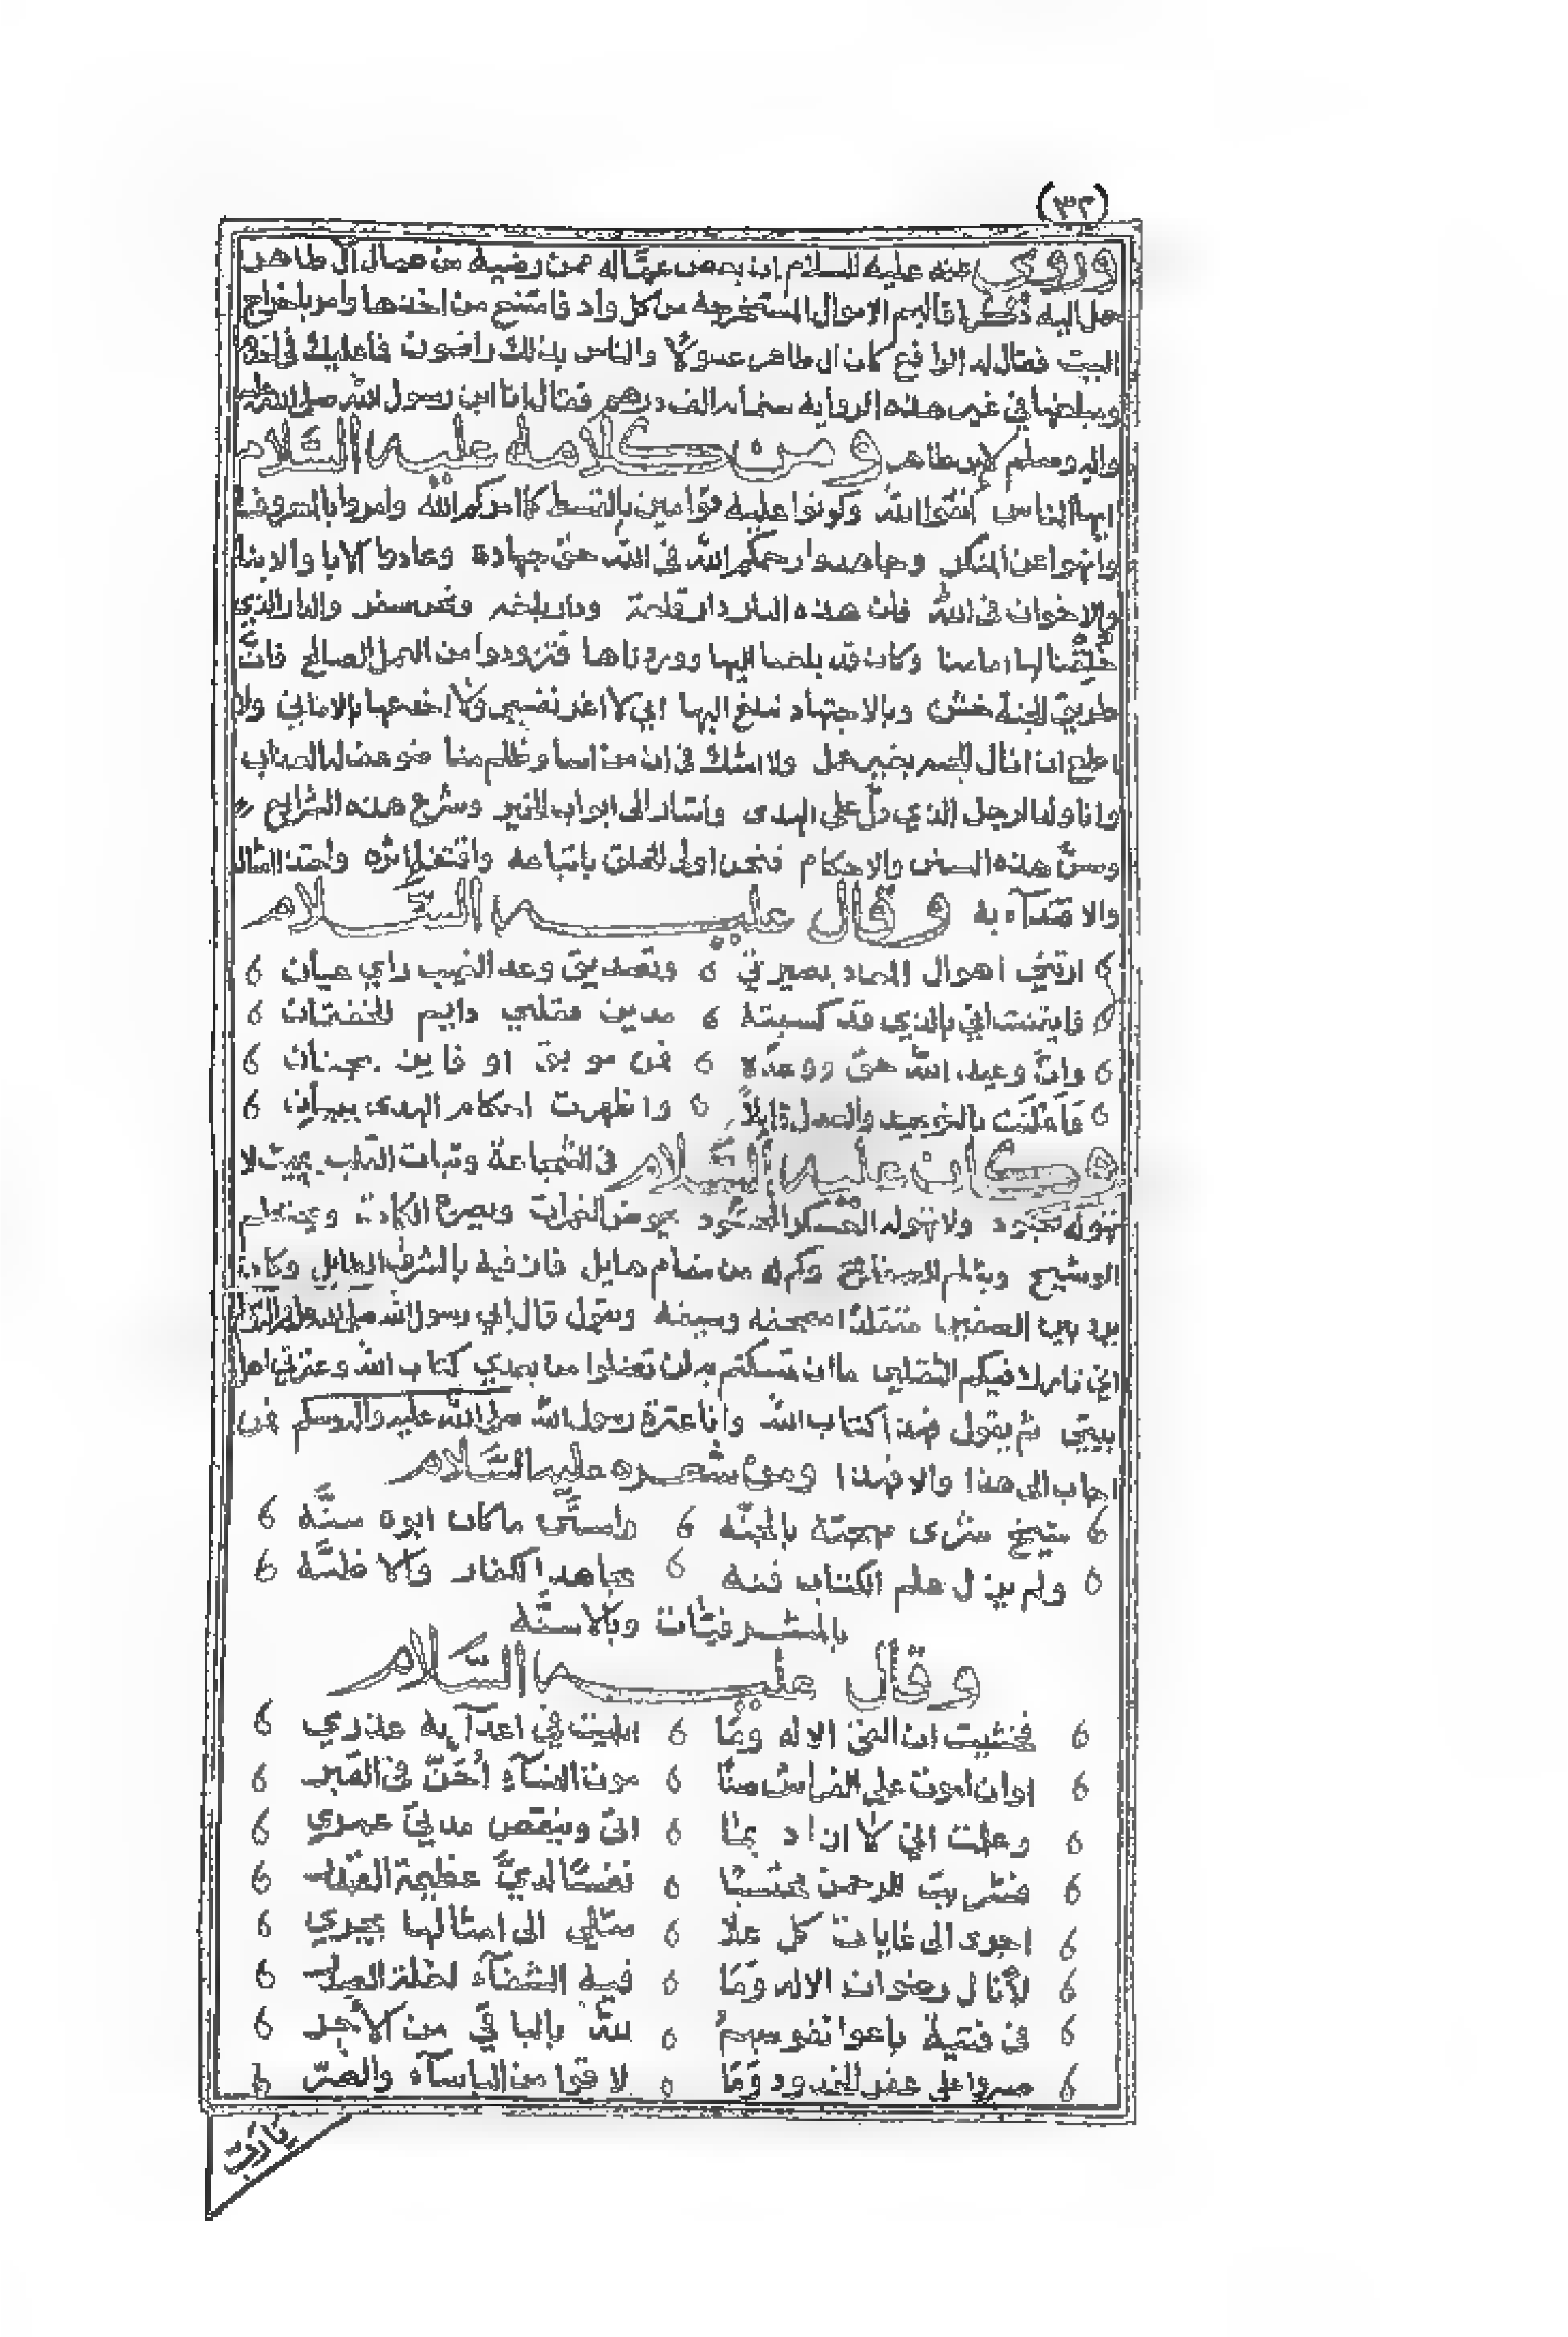 (٣٣)
وروي عنه عليه السلام ان بعض عماله ممن رضيه من عمال ال طاهر
حمل اليه ذكر انا اليم الاموال المستخرجه من كل واد فامتنع من اخذها وامر باخراج
البيت فقال له الرافع كان ال طاهر عدولا والناس بذلك راضون
في غير هذه الرواية ستمأية الف درهم فقال انا ابن رسول الله صلى الله عليه
واله وسلم لا بن طاهر ومن كلامه عليه السلام
ايها الناس اتقوا الله وكونوا عليه قوامين بالقسط كما امركم الله وامروا بالمعروف
وانهوا عن المنكر وجاهدوا رحمكم الله في الله حق جهاده وعادوا الابا والابنا
والاخوان في الله فان هذه الدار دار قلعة ودار بلغه ونحن سفر والدار الذي
خلقنا لها امامنا وكان قد بلغنا اليها ووردناها فتزودوا من العمل الصالح فان
طريق الجنة خشن وبالاجتهاد نبلغ اليها اني لا اغر نفسي ولا اخدعها بالاماني ولا
اطمع ان انال الجنه بغير عمل ولا اشك في ان من اسا وظلم منا ضوعف له العذاب
وانا ولد الرجل الذي دل على الهدى واشار الى ابواب الخير وشرع هذه الشرايع
وسن هذه السنن والاحكام فنحن اولى الخلق باتباعه واقتفا اثره واحتذا امثاله
والاقتدآء به وقال عليه السلام
ارتني اهوال المعاد بصيرتي وتصديق وعد الغيب راي عيان
فايقنت اني بالذي قد كسبته مدين فقلبي دايم الخفقان
وان وعيد الله حق ووعده فمن موبق او فايز بجنان
فاعلنت بالتوحيد والعدل قايلا واظهرت احكام الهدى ببيان
وكان عليه السلام في الشجاعة وثبات القلب بحيث لا
تهوله الجنود ولا تهوله العسكر المحشود يخوض الغمرات ويصرع الكماة ويحطم
الوشيج ويثلم الصفائح وكم له من مقام هايل فاز فيه بالشرف الطايل وكان
يرد بين الصفين متقلدا مصحفه وسيفه ويقول قال ابي رسول الله صلى الله عليه واله وسلم
اني تارك فيكم الثقلين ما ان تمسكتم به لن تضلوا من بعدي كتاب الله وعترتي اهل
بيتي ثم يقول فهذا كتاب الله وانا عترة رسول الله صلى الله عليه واله وسلم فمن
اجاب الى هذا والا فهذا ومن شعره عليه السلام
شيخ شرى مهجته بالجنه واستن ماكان ابوه سنه
ولم يزل علم الكتاب فنه يجاهد الكفار والاظنه
بالمشرفيات وبالاسنه
وقال عليه السلام
فخشيت ان القى الاله وما ابليت في اعدآءيه عذري
اوان اموت على الفراش ضنا موت النسآء اجن في القبر
وعلمت اني لا ازاد بما اتى وينقص مدتي عمري
فشرى يب للرحمن محتسبا نفسا لدي عظيمة القدر
اجري الى غايات كل علا مثلي الى امثالها يجري
لأنال رضوان الاله وما فيه الشفآء لغلة الصدر
في فتية باعوا نفوسهم لله بالباقي من الأجر
صبروا على عض الحديد وما لاقوا من الباسآء والضر
يارب